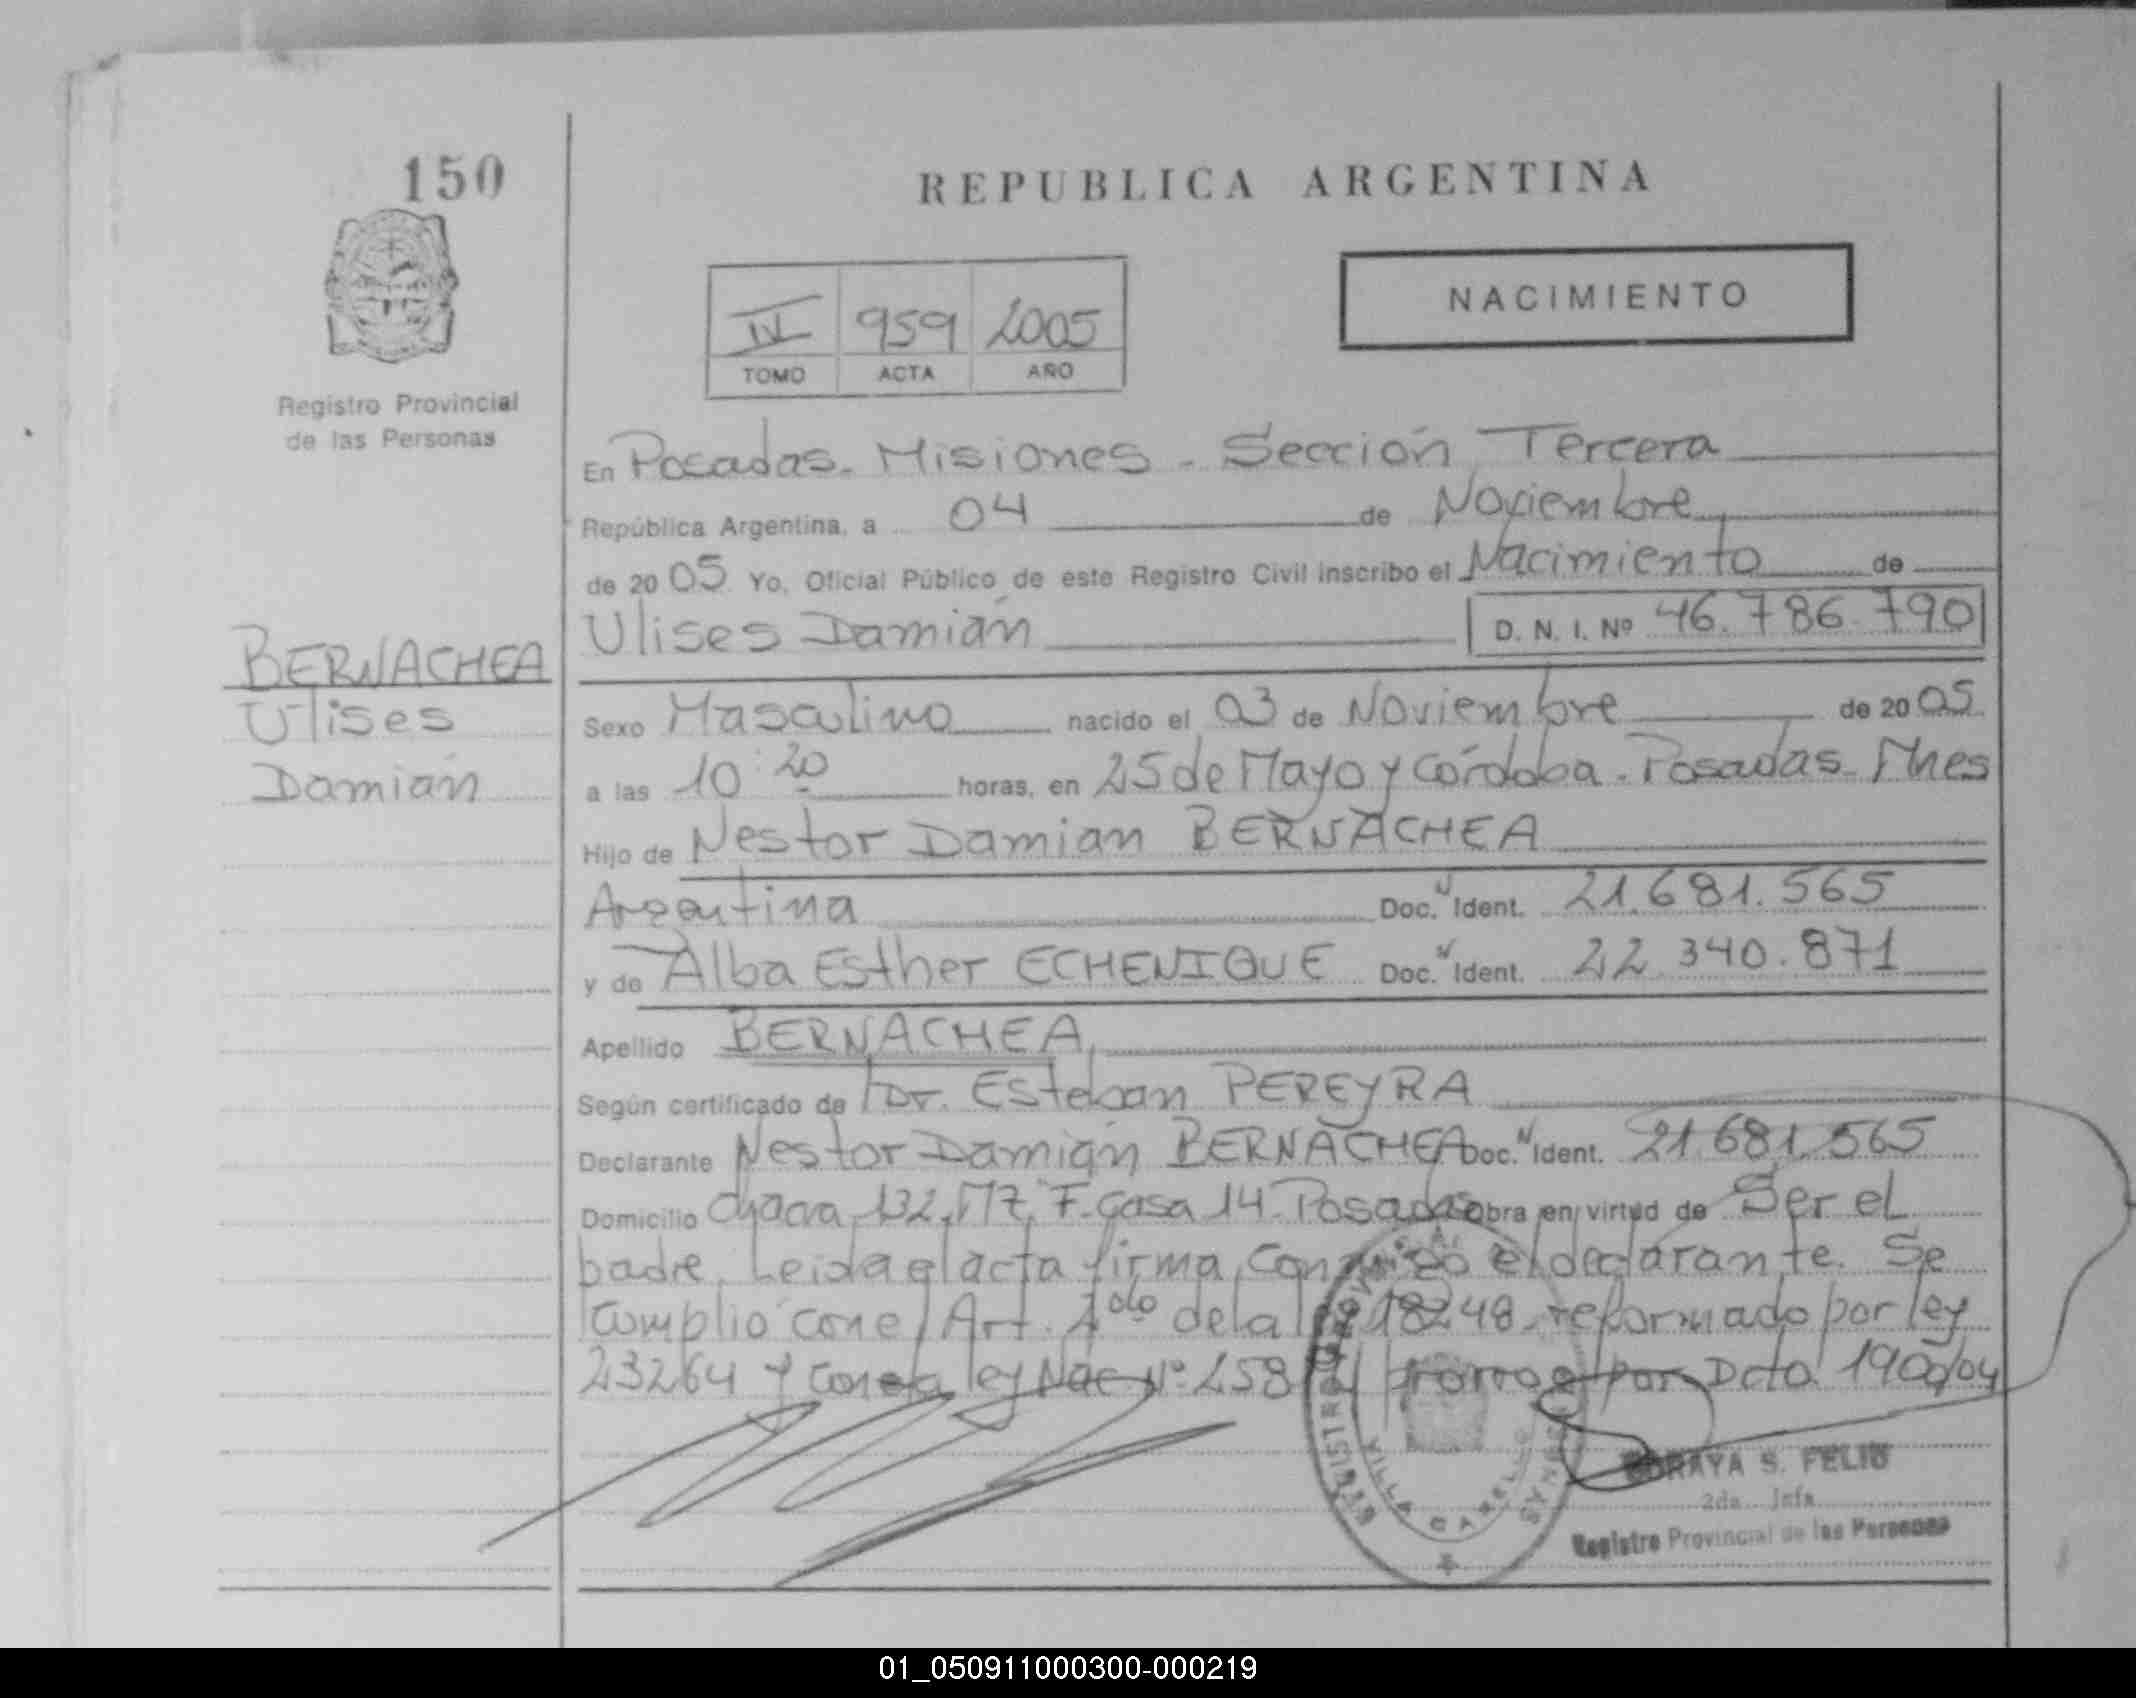 150
REPUBLICA ARGENTINA
NACIMIENTO
IV 959 2005
TOMO ACTA AÑO
Registro Provincial
de las Personas
En Posadas - Misiones - Sección Tercera
República Argentina, a 04 de Noviembre
de 2005. Yo, Oficial Público de este Registro Civil inscribo el Nacimiento de
Ulises Damián D. N. I. Nº 46.786.790
BERNACHEA
Ulises
Damián
Sexo Masculino nacido el 03 de Noviembre de 2005.
a las 10:20 horas, en 25 de Mayo y Córdoba - Posadas - Mnes
Hijo de Nestor Damian BERNACHEA
Argentina Doc. Ident. 21.681.565
y de Alba Esther ECHENIQUE Doc. Ident. 22.340.871
Apellido BERNACHEA
Según certificado de Dr. Esteban PEREYRA
Declarante Nestor Damián BERNACHEA Doc. Ident. 21.681.565
Domicilio Chacra 132, Mz F. Casa 14 - Posadas obra en virtud de Ser el
padre. Leida el acta firma conmigo el declarante. Se
cumplió con el Art. 2do de la ley 18248, reformado por ley
23264 y con la ley Nac Nº 258 prorrog por Dcto 1900/04
REGISTRO PROVINCIAL
VILLA CABELLO
SORAYA S. FELIU
2da. Jefa
Registro Provincial de las Personas
01_050911000300-000219